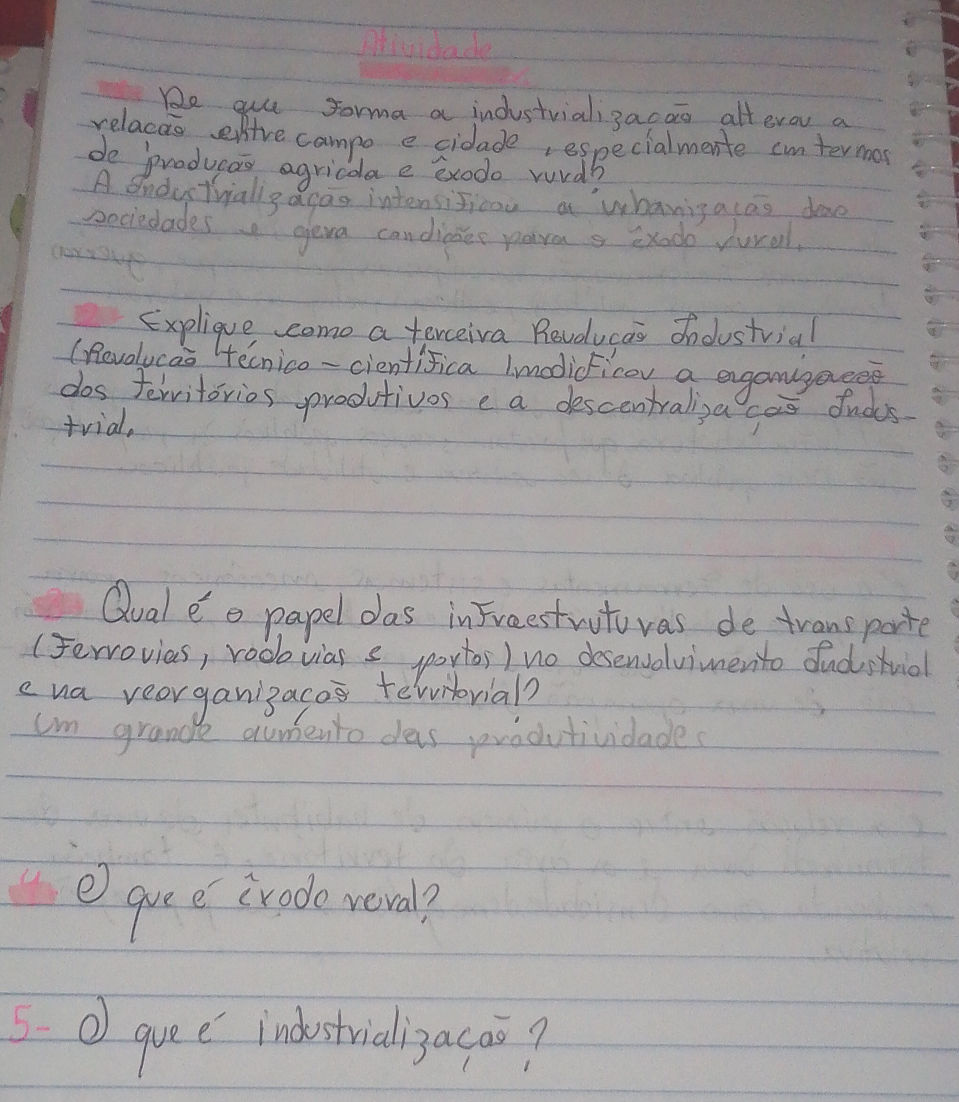 Atividade
De que forma a industrialização alterou a
relação entre campo e cidade, especialmente em termos
de produção agrícola e êxodo rural?
A Industrialização intensificou a urbanização das
sociedades e gera condições para o êxodo rural.
2- Explique como a terceira Revolução Industrial
(Revolução técnico-científica) modificou a
dos territórios produtivos e a descentralização Indus-
trial.
3 Qual é o papel das infraestruturas de transporte
(Ferrovias, rodovias e portos) no desenvolvimento Industrial
e na reorganização territorial?
Um grande aumento das produtividades
4- O que é êxodo reral?
5- O que é industrialização?